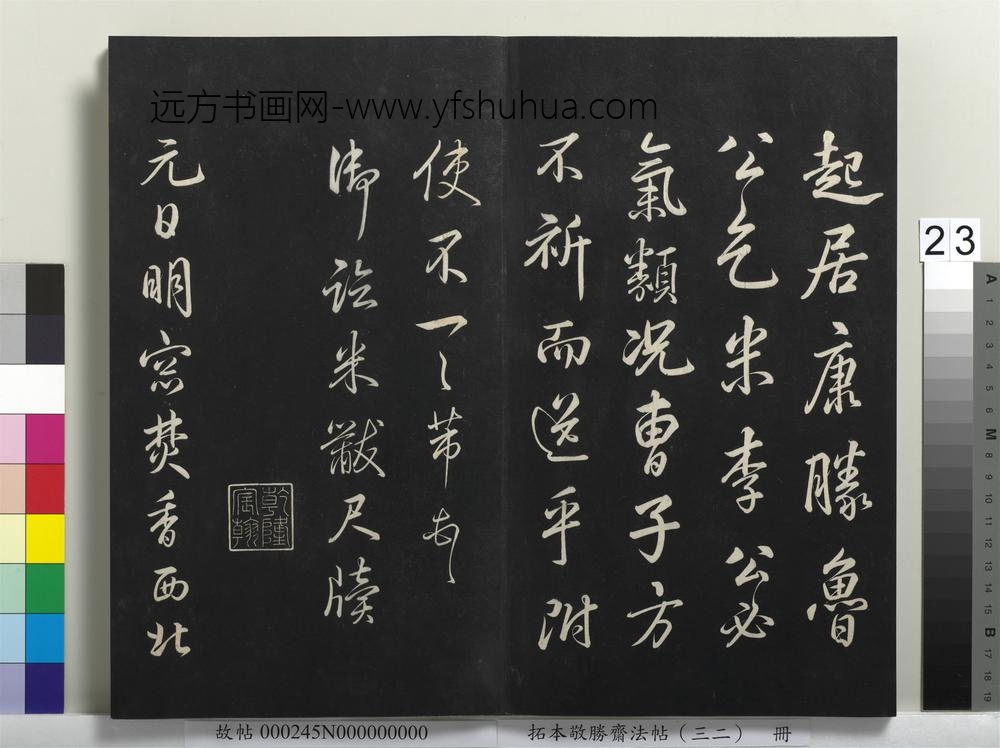 远方书画网-www.yfshuhua.com
起居康勝魯
公乞米李公必
氣類況曹子方
不祈而送乎附
使不一〻芾
御臨米黻尺牘
乾隆宸翰
元日明窓焚香西北
23
A 1 2 3 4 5 6 M 8 9 10 11 12 13 14 15 B 17 18 19
故帖 000245N000000000
拓本敬勝齋法帖（三二） 冊